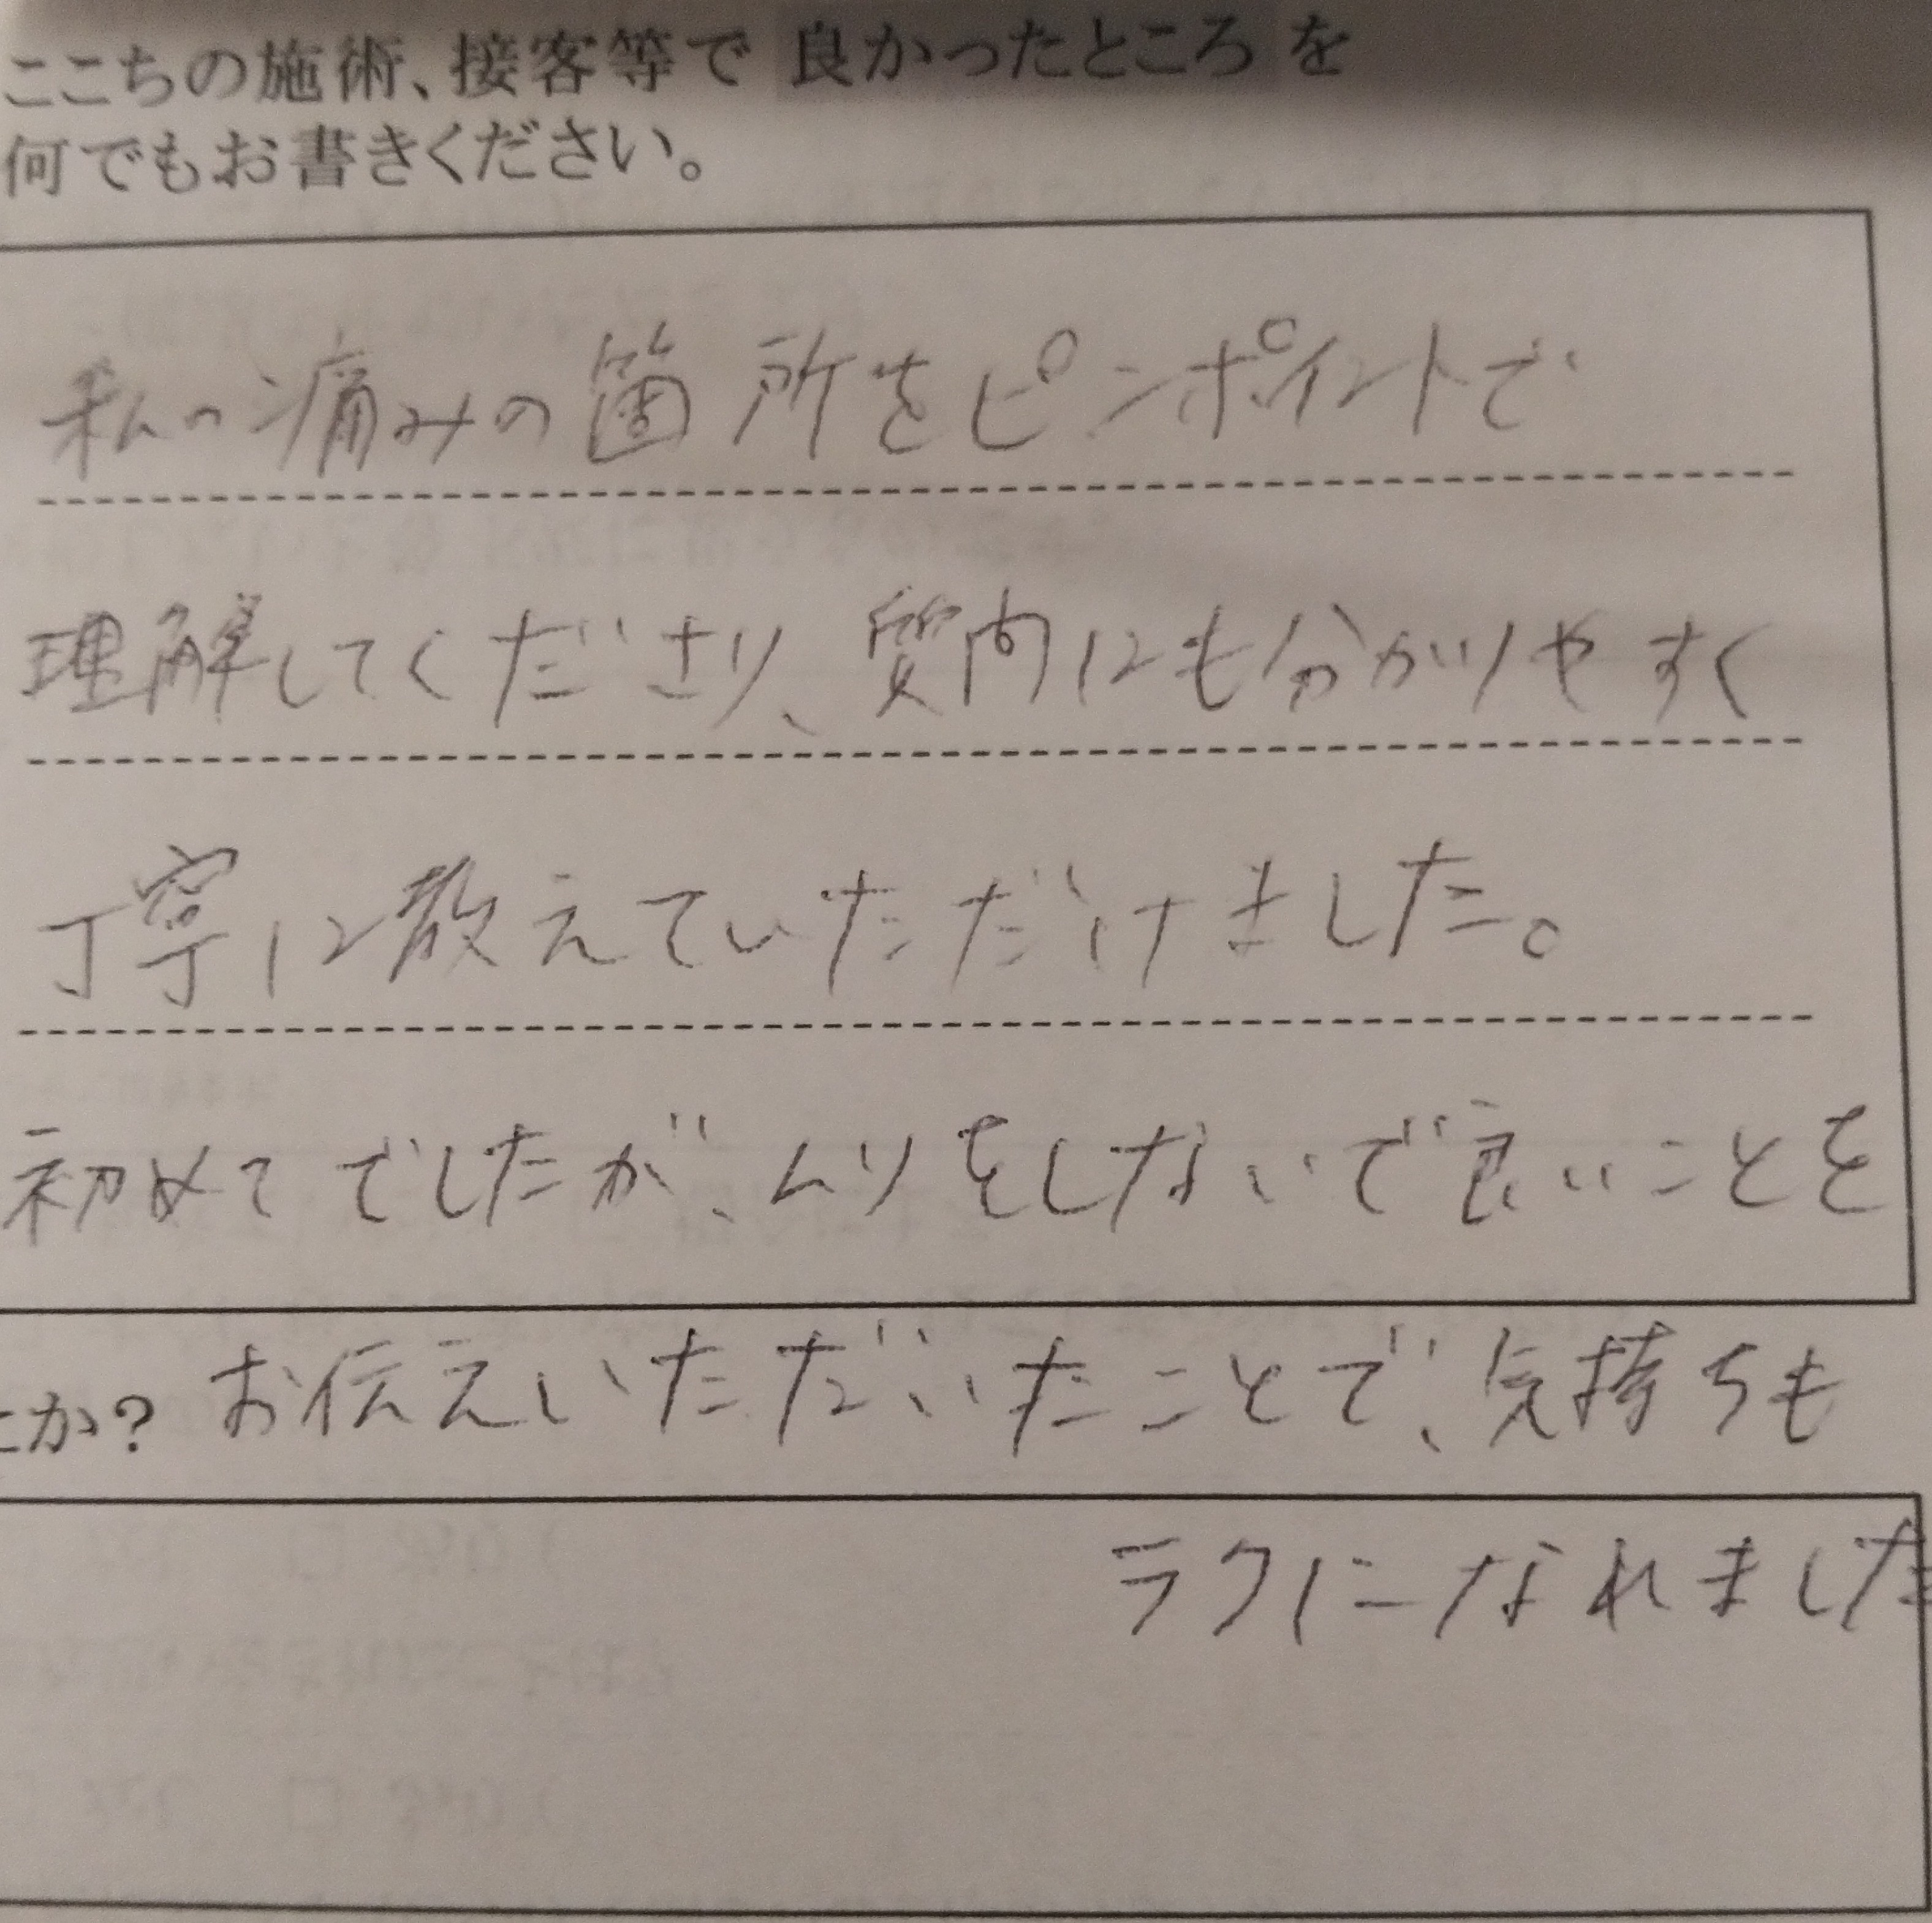 ここちの施術、接客等で 良かったところ を
何でもお書きください。
私の痛みの箇所をピンポイントで
理解してくださり、質問にも分かりやすく
丁寧に教えていただけました。
初めてでしたが、ムリをしないで良いことを
とか? お伝えいただいたことで、気持ちも
ラクになれました